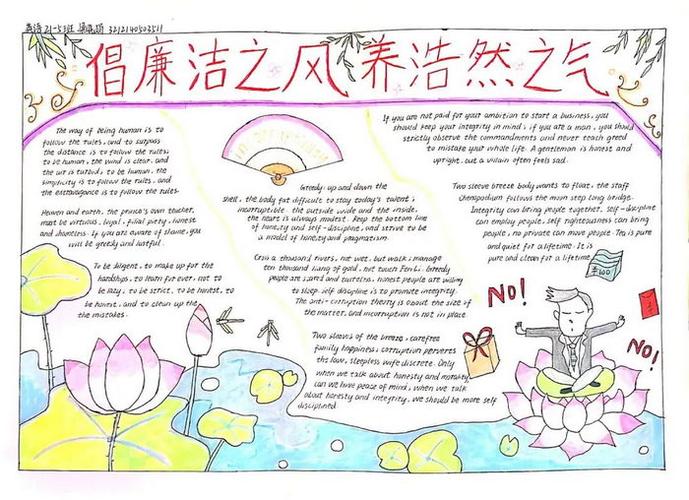 英语21-5班
3212140503511
倡廉洁之风 养浩然之气
The way of being human is to
follow the rules, and to surpass
the distance is to follow the rules;
to be human, the wind is clear, and
the air is turbid; to be human, the
simplicity is to follow the rules and
the extravagance is to follow the rules.
Heaven and earth, the prince's own teacher,
must be virtuous, loyal, filial piety, honest
and shameless. If you are aware of shame, you
will be greedy and hatful.
To be diligent, to make up for the
hardships, to learn for ever, not to
be lazy, to be strict, to be honest, to
be honest, and to clean up the
the mistakes.
Greedy up and down the
shell, the body fat difficult to stay today's talent's
incorruptible. the outside wide and the inside,
the heart is always modest. Keep the bottom line
of honesty and self-discipline, and strive to be
a model of honesty and pragmatism.
Cross a thousand rivers, not wet, but walk; manage
ten thousand liang of gold, not touch Fen Li. Greedy
people are and honest people are willing
to sleep. self discipline is to promote integrity.
The anti-corruption theory is about the size of
the matter, and incorruption is not in place.
Two sleeves of the breeze, carefree
family happiness; corruption perverts
the law, sleepless wife discrete. Only
when we talk about honesty and morality
can we have peace of mind; when we talk
about honesty and integrity, we should be more self
disciplined.
If you are not paid for your ambition to start a business, you
should keep your integrity in mind; if you are a man, you should
strictly observe the commandments and never teach greed
to mistake your whole life. A gentleman is honest and
upright, but a villain often feels sad.
Two sleeve breeze body wants to float, the staff
chenopodium follows the moon step long bridge.
Integrity can bring people together, self-discipline
can employ people, self righteousness can bring
people, no private can move people. Tea is pure
and quiet for a lifetime. It is
pure and clean for a lifetime.
¥100
NO!
NO!